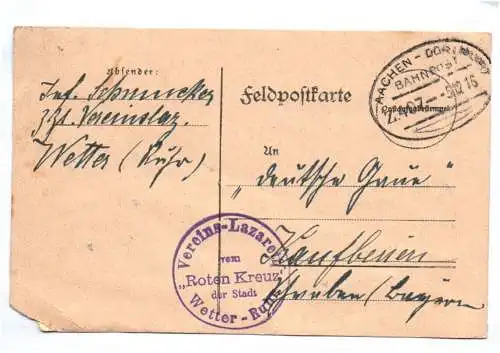 Absender:
Inf. Schmucker
z. Zt. Vereinslaz.
Wetter (Ruhr)
Feldpostkarte
AACHEN - DORTMUND
BAHNPOST
An
„Deutsche Gaue“
Kaufbeuren
Schwaben (Bayern)
Vereins-Lazarett
vom
„Roten Kreuz“
der Stadt
Wetter-Ruhr